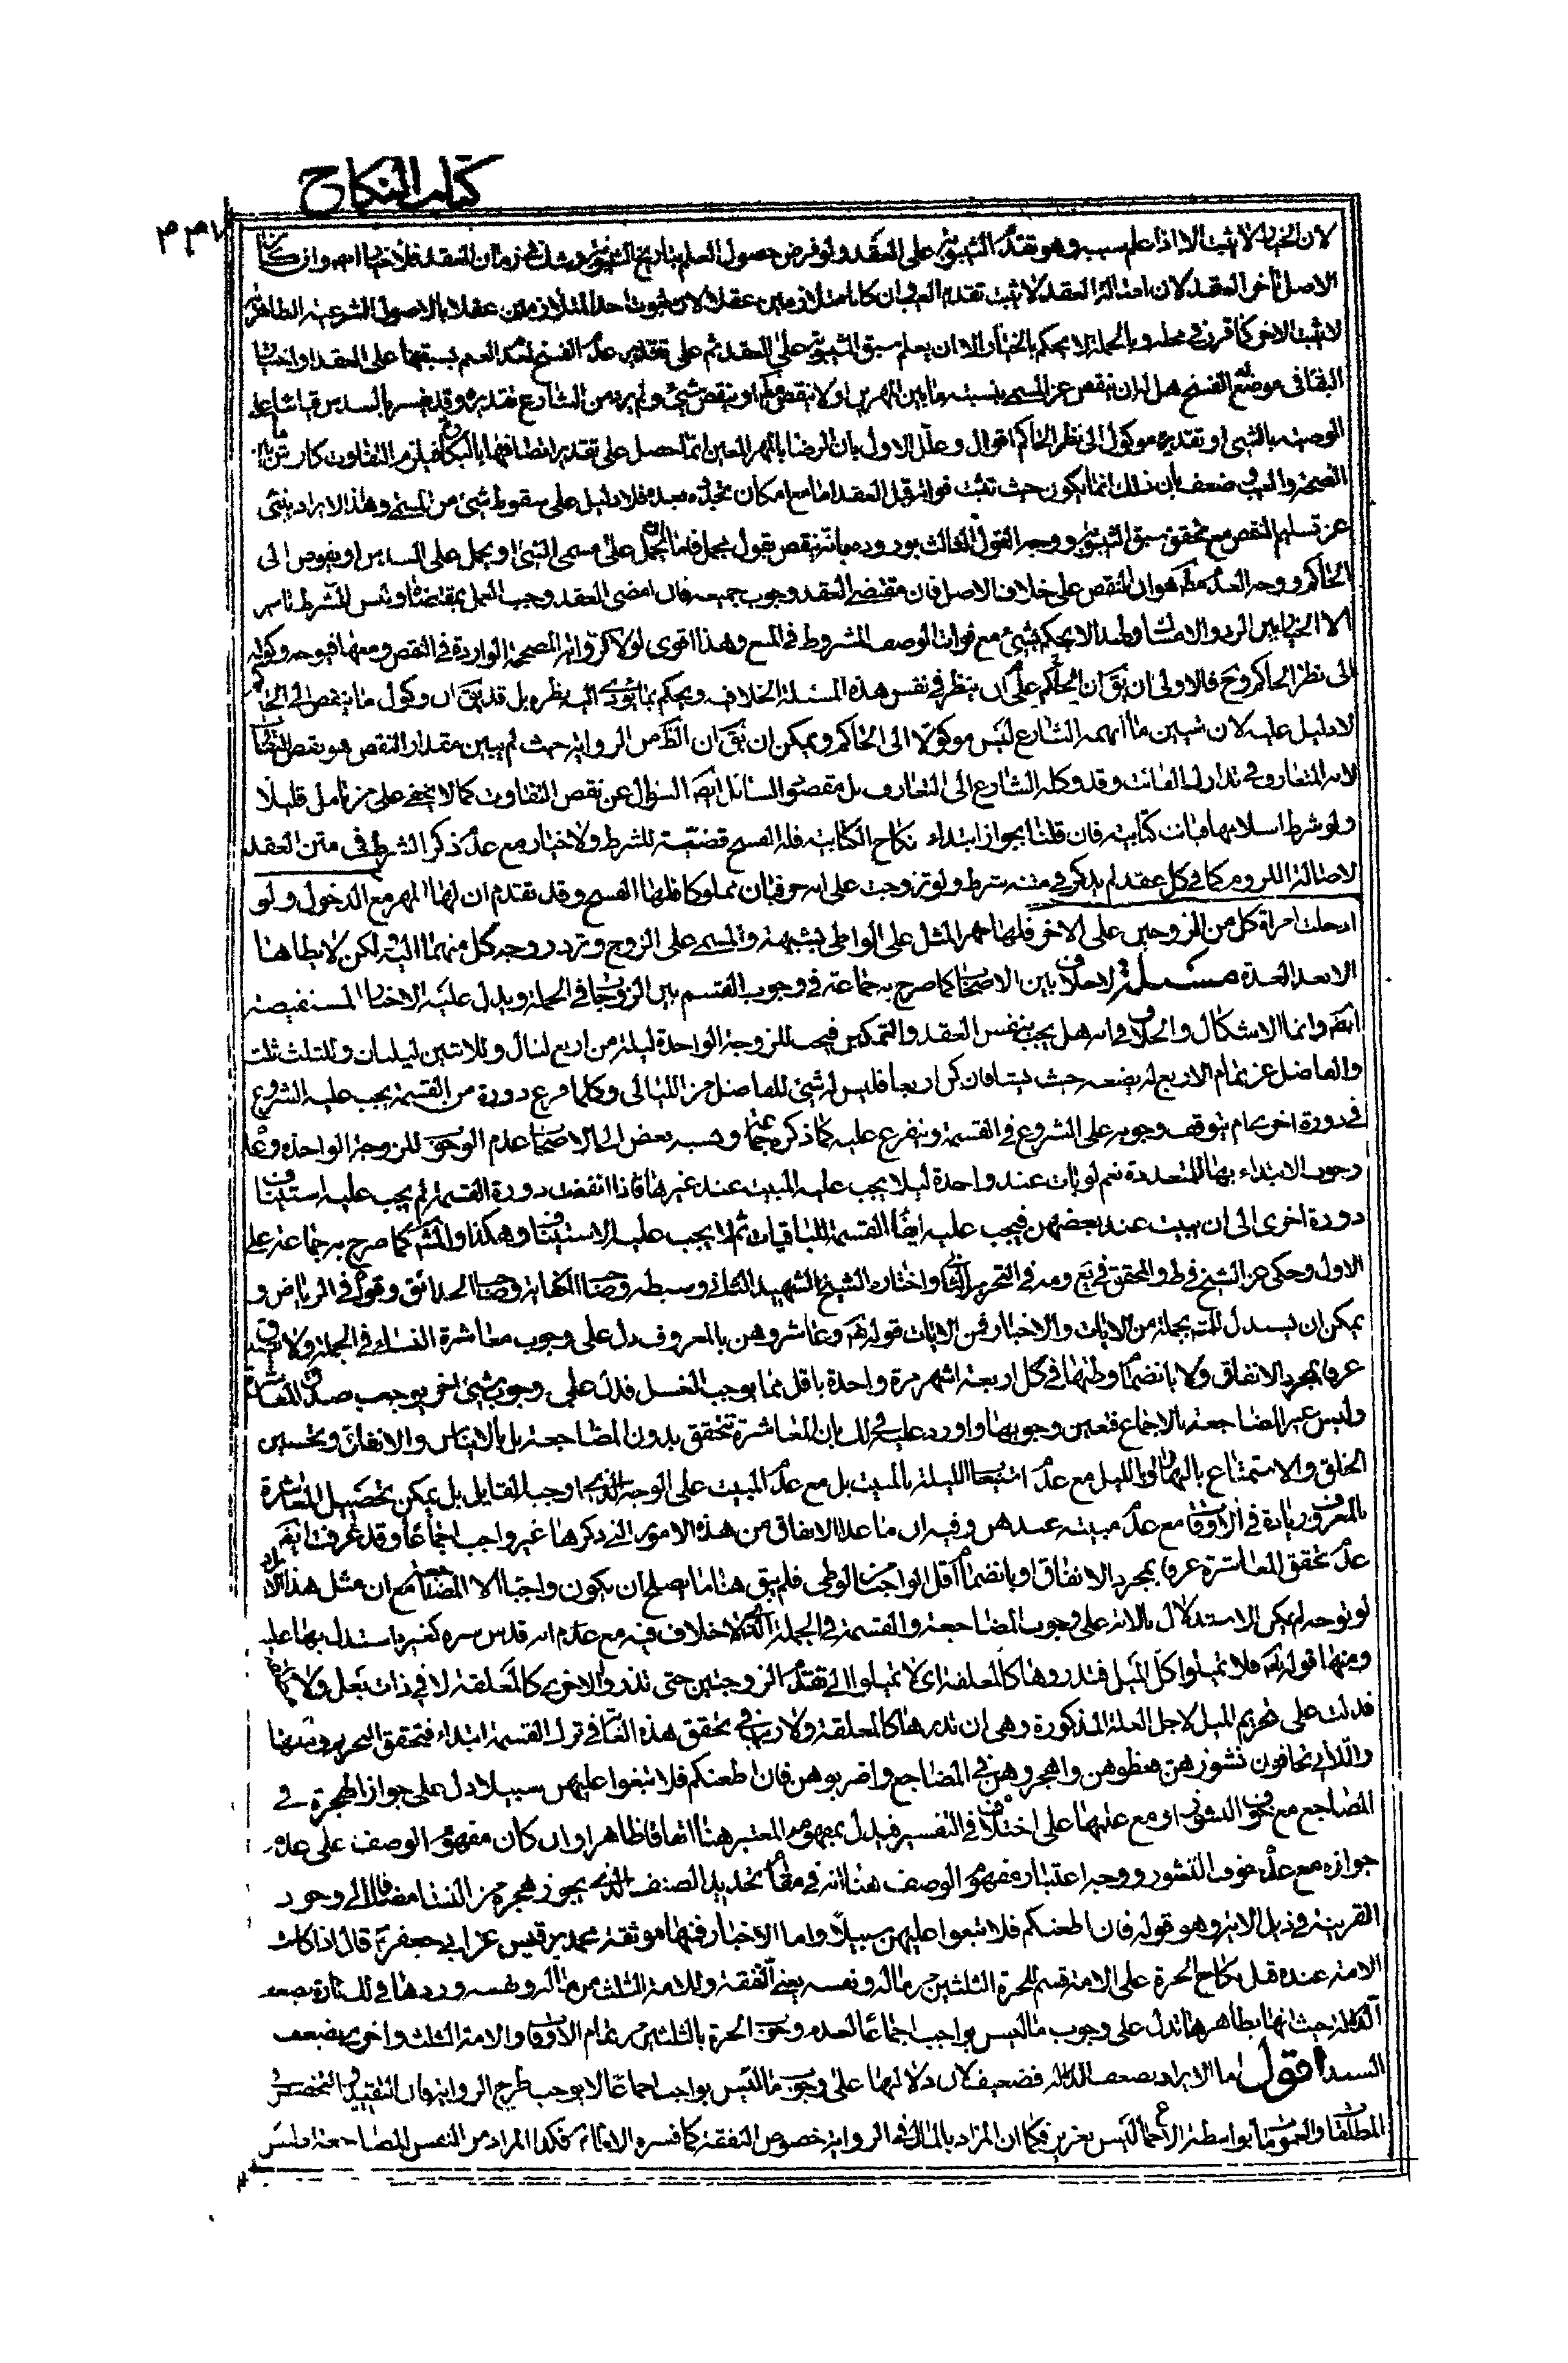 كتاب النكاح
٤٣٧
لان الخيار لا يثبت الا اذا علم سببه وهو تقدم الثيبوبة على العقد ولو فرض حصول العلم بتاريخ الثيبوبة وشك في زمان العقد فلا خيار ايضا وان كان
الاصل تأخر العقد لان اصالة العقد لا يثبت تقدم العيب وان كانا متلازمين عقلا لان ثبوت احد المتلازمين عقلا بالاصول الشرعية الظاهرة
لا يثبت الاخر كما قرر في محله وبالجملة لا يحكم بالخيار الا ان يعلم سبق الثيبوبة على العقد ثم على تقدير عدم الفسخ لعدم العلم بسبقها على العقد او اختيار
البقاء في موضع الفسخ هل له ان ينقص عن المسمى بنسبة ما بين المهرين او لا ينقص مطلقا او ينقص شيئ ولم يرد من الشارع تقديره وقد يفسر بالسدس قياسا على
الوصية بالشيئ او تقديره موكول الى نظر الحاكم اقوال وعلل الاول بان الرضا بالمهر المعين انما حصل على تقدير اتصافها بالبكارة فيلزم التفاوت كارش ما بين
الصحة والعيب وضعف بان ذلك انما يكون حيث تثبت فواته قبل العقد اما مع امكان تجدده بعده فلا دليل على سقوط شيئ من المسمى وهذا الايراد ينبئ
عن تسليم النقص مع تحقق سبق الثيبوبة ووجه القول الثالث بورود رواية ينقص بقول مجمل فاما ان يحمل على مسمى الشيئ او يحمل على السدس او يفوض الى
الحاكم ووجه العدم مطلقا هو ان النقص على خلاف الاصل فان مقتضى العقد وجوب جميعه فان امضى العقد وجب العمل بمقتضاه وليس للشرط تاثير
الا الخيار بين الرد والامساك ولهذا لا يحكم بشيئ مع فوات الوصف المشروط في البيع وهذا اقوى لولا الرواية الصحيحة الواردة في النقص ومعها فيوجه وكوله
الى نظر الحاكم وح فالاولى ان يق ان الحاكم عليه ان ينظر في نفس هذه المسئلة الخلافية ويحكم بما يؤدي اليه نظره بل قد يق ان وكول ما ينقص الى الحاكم
لا دليل عليه لان تبيين ما ابهمه الشارع ليس موكولا الى الحاكم ويمكن ان يق ان الظ من الرواية حيث لم يبين مقدار النقص هو نقص التفاوت
لانه المتعارف في تدارك الفائت وقد وكله الشارع الى التعارف بل مقصود السائل ايضا السؤال عن نقص التفاوت كما لا يخفى على من تامل قليلا
ولو شرط اسلامها فبانت كتابية فان قلنا بجواز ابتداء نكاح الكتابية فله الفسخ قضية للشرط ولا خيار مع عدم ذكر الشرط في متن العقد
لاصالة اللزوم كما في كل عقد لم يذكر في متنه شرط ولو تزوجت على انه حر فبان مملوكا فلها الفسخ وقد تقدم ان لها المهر مع الدخول ولو
ادخلت امراة كل من الزوجين على الاخر فلها مهر المثل على الواطى بشبهة والمسمى على الزوج وترد زوجة كل منهما اليه لكن لا يطاها
الا بعد العدة مسئلة لا خلاف بين الاصحاب كما صرح به جماعة في وجوب القسم بين الزوجات في الجملة ويدل عليه الاخبار المستفيضة
ايضا وانما الاشكال والخلاف في انه هل يجب بنفس العقد والتمكين فيجب للزوجة الواحدة ليلة من اربع ليال وللاثنتين ليلتان وللثلث ثلث
والفاضل عن تمام الاربع له يضعه حيث يشاء فان كن اربعا فليس له شيئ للفاضل من الليالى وكلما فرغ دورة من القسمة يجب عليه الشروع
في دورة اخرى ام يتوقف وجوبه على الشروع في القسمة ويتفرع عليه كما ذكره جماعة ونسبه بعض الى الاصحاب عدم الوجوب للزوجة الواحدة وعدم
وجوب الابتداء بها للمتعددة نعم لو بات عند واحدة ليلا يجب عليه المبيت عند غيرها فاذا انقضت دورة القسمة لم يجب عليه استيناف
دورة اخرى الى ان يبيت عند بعضهن فيجب عليه ايضا القسمة للباقيات ثم لا يجب عليه الاستيناف وهكذا والمشهور كما صرح به جماعة على
الاول وحكى عن الشيخ في ط والمحقق في يع ومه في التحرير الثانى واختاره الشيخ الشهيد الثانى وسبطه وصاحبا الكفاية وصاحب الحدائق وقواه في الرياض و
يمكن ان يستدل للمشهور بجملة من الايات والاخبار فمن الايات قوله تعالى وعاشروهن بالمعروف دل على وجوب معاشرة النساء في الجملة ولا يصدق
عرفا بمجرد الانفاق ولا بانضمام وطئها في كل اربعة اشهر مرة واحدة باقل مما يوجب الغسل فدل على وجوب شيئ اخر يوجب صدق المعاشرة
وليس غير المضاجعة بالاجماع فتعين وجوبها واورد عليه في ذلك بان المعاشرة تتحقق بدون المضاجعة بل بالايناس والانفاق وتحسين
الخلق والاستمتاع بالنهار او بالليل مع عدم استيعاب الليلة بالمبيت بل مع عدم المبيت على الوجه الذي اوجبه القائل بل يمكن تحصيل المعاشرة
بالمعروف زيادة في الاوقات مع عدم مبيته عندهن وفيه ان ما عدا الانفاق من هذه الامور التي ذكرها غير واجب اجماعا وقد عرفت ايضا
عدم تحقق المعاشرة عرفا بمجرد الانفاق او بانضمام اقل الواجب من الوطى فلم يبق هنا ما يصلح ان يكون واجبا الا المضاجعة مع ان مثل هذا الايراد
لو توجه لم يمكن الاستدلال بالاية على وجوب المضاجعة والقسمة في الجملة الذي لا خلاف فيه مع علم انه قدس سره كغيره استدل بها عليه
ومنها قوله تعالى فلا تميلوا كل الميل فتذروها كالمعلقة اى لا تميلوا الى تقديم الزوجتين حتى تذروا الاخرى كالمعلقة لا في ذات بعل ولا
فدلت على تحريم الميل لاجل العلة المذكورة وهى ان تذرها كالمعلقة ولا ريب في تحقق هذه الغاية في ترك القسمة ابتداء فتحقق التحريم ومنها
واللاتى تخافون نشوزهن فعظوهن واهجروهن في المضاجع واضربوهن فان اطعنكم فلا تبغوا عليهن سبيلا دل على جواز الهجرة في
المضاجع مع خوف النشوز او مع علمها على اختلاف في التفسير فيدل بمفهومه المعتبر هنا اتفاقا ظاهرا وان كان مفهوم الوصف على عدم
جوازه مع عدم خوف النشوز ووجه اعتبار مفهوم الوصف هنا انه في مقام تحديد الصنف الذي يجوز هجره من النساء مضافا الى وجود
القرينة في ذيل الاية وهو قوله فان اطعنكم فلا تبغوا عليهن سبيلا واما الاخبار فمنها موثقة محمد بن قيس عن ابى جعفر ع قال اذا كانت
الامة عنده قبل نكاح الحرة على الامة قسم للحرة الثلثين من ماله ونفسه يعنى نفقته وللامة الثلث من ماله ونفسه وردها في ذلك تارة بضعف
الدلالة حيث انها بظاهرها تدل على وجوب ما ليس بواجب اجماعا لعدم وجوب الحرة بالثلثين من تمام الاوقات والامة الثلث واخرى بضعف
السند اقول اما الايراد بضعف الدلالة فضعيف لان دلالتها على وجوب ما ليس بواجب اجماعا لا يوجب طرح الرواية فان التقييد والتخصيص في
المطلقات والعمومات بواسطة الاجماع ليس بعزيز فكما ان المراد بالمال في الرواية خصوص النفقة كما فسره الامام ع فكذا المراد من النفس المضاجعة فليس